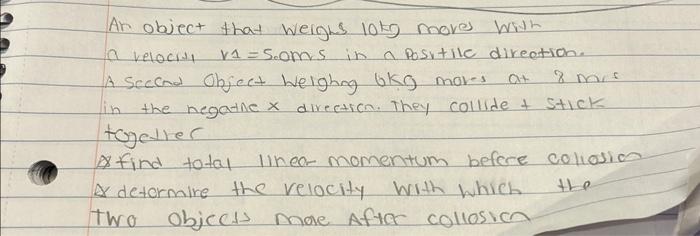 An object that weighs 10kg moves with
a velocity v1 = 5.0ms in a positile direction.
A second Object weighng 6kg moves at 8 m/s
in the negative x direction. They collide + stick
together
find total linear momentum before collosion
determine the velocity with which the
two objects move After collosion